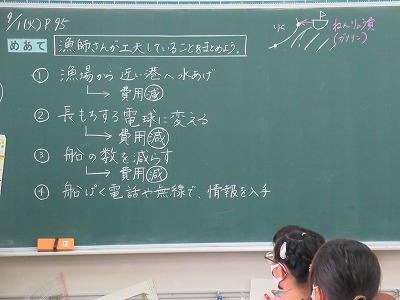 9/1(火)P.95
めあて 漁師さんが工夫していることをまとめよう。
① 漁場から近い港へ水あげ
→ 費用減
② 長もちする電球に変える
→ 費用減
③ 船の数を減らす
→ 費用減
④ 船ぱく電話や無線で、情報を入手
りく
ねんりょう費
(ガソリン)